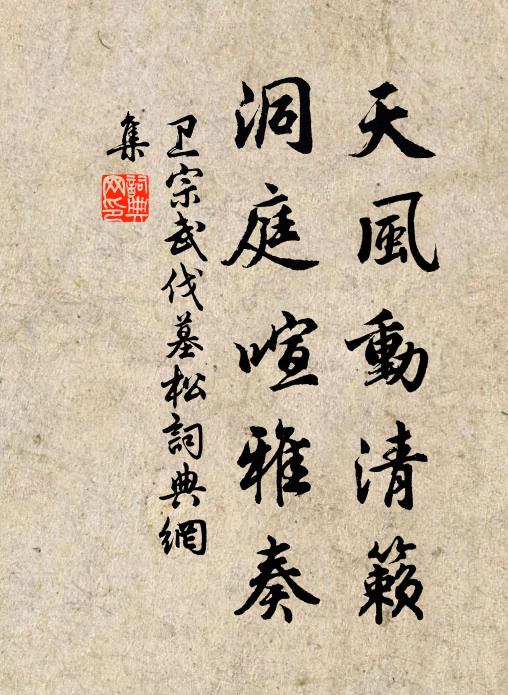 天風動清籟
洞庭喧雅奏
卫宗武伐墓松詞典網
集
詞典网印